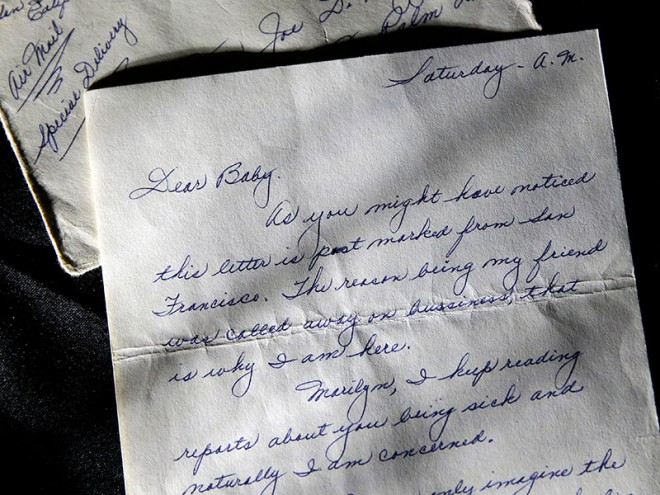 Joe D.
Palm
Air Mail
Special Delivery
Saturday - A.M.
Dear Baby.
As you might have noticed
this letter is post marked from San
Francisco. The reason being my friend
was called away on bussiness, that
is why I am here.
Marilyn, I keep reading
reports about you being sick and
naturally I am concerned.
only imagine the